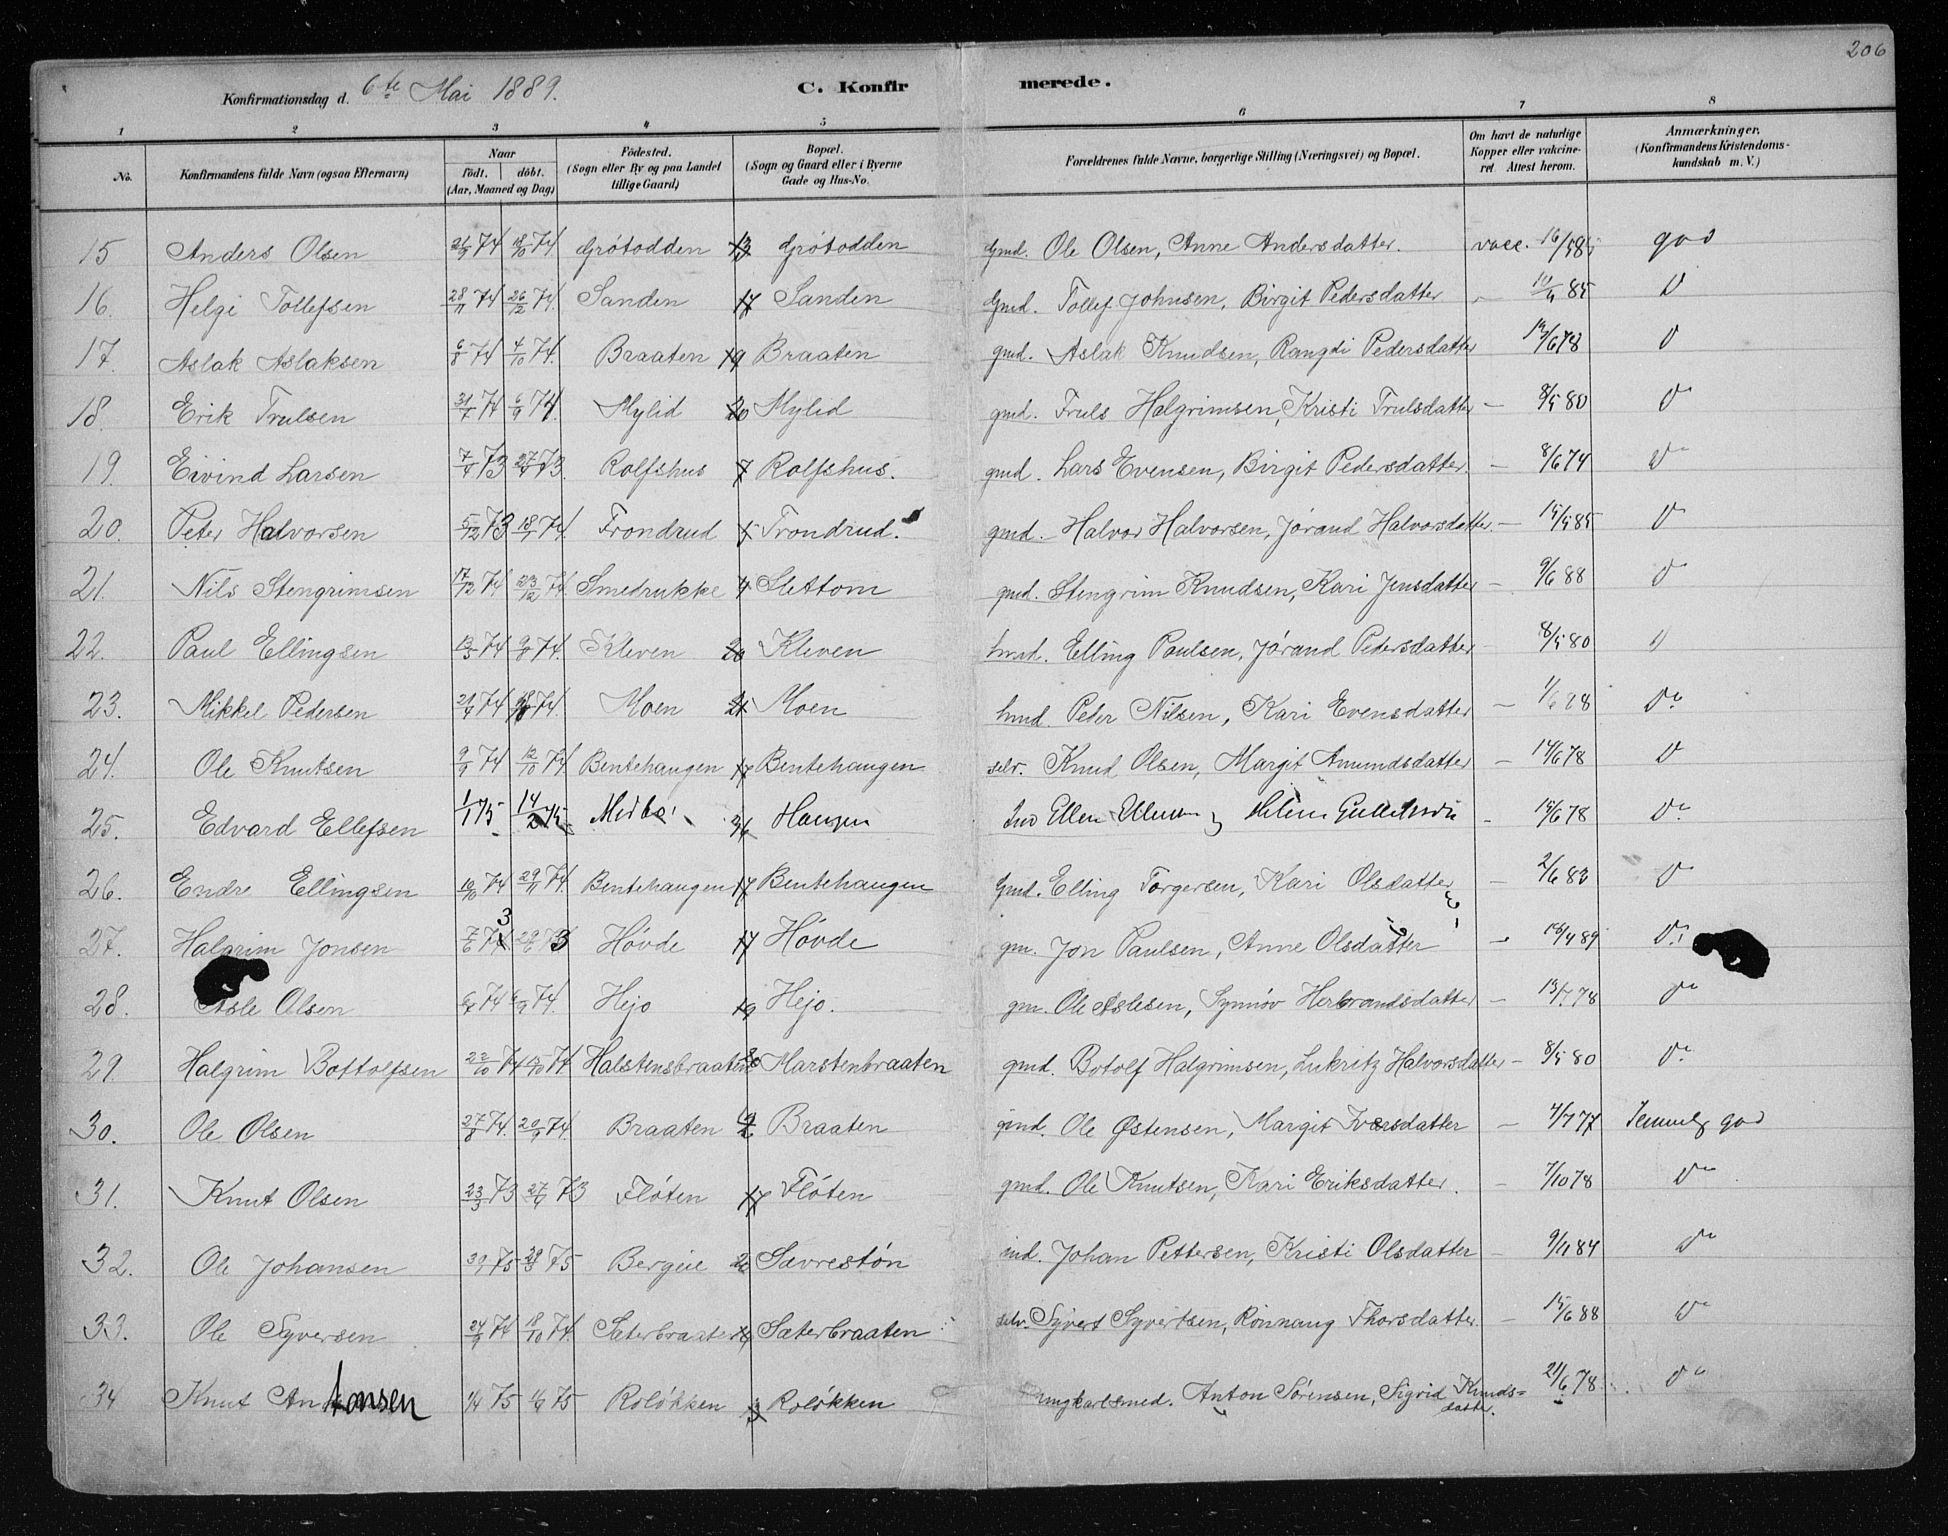 206
Konfirmationsdag d. 6te Mai 1889. C. Konfirmerede.
1 2 3 4 5 6 7 8
No. Konfirmandens fulde Navn (ogsaa Efternavn) Naar født. døbt. (Aar, Maaned og Dag) Fødested. (Sogn eller By og paa Landet tillige Gaard) Bopæl. (Sogn og Gaard eller i Byerne Gade og Hus-No. Forældrenes fulde Navne, borgerlige Stilling (Næringsvei) og Bopæl. Om havt de naturlige Kopper eller vakcineret. Attest herom. Anmærkninger. (Konfirmandens Kristendomskundskab m. V.)
15 Anders Olsen 21/9 74 18/10 74 Grøtodden 13 Grøtodden Gmd. Ole Olsen, Anne Andersdatter. vacc. 16/5 85 god
16. Helge Tollefsen 28/11 74 26/12 74. Sanden 17 Sanden Gmd. Tollef Johnsen, Birgit Pedersdatter 85 D
17. Aslak Aslaksen 6/8 74 4/10 74. Braaten 19 Braaten gmd. Aslak Knudsen, Rangdi Pedersdatter 12/6 78 D
18. Erik Trulsen 31/7 74 6/9 74. Mylid 20 Mylid gmd. Truls Halgrimsen, Kristi Trulsdatter - 8/5 80 Do
19. Eivind Larsen 73 73. Rolfshus 7 Rolfshus. gmd. Lars Evensen, Birgit Pedersdatter - 8/6 74 Do
20. Peter Halvorsen 5/12 73 18/1 74. Trondrud 5 Trondrud. gmd. Halvor Halvorsen, Jørand Halvorsdatter. - 15/5 85 D
21. Nils Stengrimsen 17/12 74 23/12 74. Smedrukke 4 Slettom gmd. Stengrim Knudsen, Kari Jensdatter - 9/6 88 D
22. Paul Ellingsen 13/3 74 74. Kleven 20 Kleven hmd. Elling Paulsen, Jørand Pedersdatter - 8/5 80 D
23. Mikkel Pedersen 74 74. Moen 21 Moen hmd. Peder Nilsen, Kari Evensdatter - 1/6 88 Do
24. Ole Knutsen 9/9 74 12/10 74. Bentehaugen 17 Bentehaugen selv. Knud Olsen, Margit Amundsdatter - 14/6 78 D
25. Edvard Ellefsen 1/1 75 14/2 75 36 Haugen - 15/6 78 Do
26. Endre Ellingsen 10/10 74 29/11 74. Bentehaugen 17 Bentehaugen Gmd. Elling Torgersen, Kari Olsdatter - 2/6 83 Do
27. Halgrim Jonsen 7/6 73 29/6 73 Høvde 17 Høvde gm. Jon Paulsen, Anne Olsdatter - 89 Do
28. Asle Olsen 6/7 74 6/9 74. Hejo 19 Hejo. gm. Ole Aslesen, Synnøv Herbrandsdatter - 13/7 78 Do
29. Halgrim Bottolfsen 22/10 74 74 Halstensbraaten Marstenbraaten gmd. Botolf Halgrimsen, Lukritz Halvorsdatter - 8/5 80 Do
30. Ole Olsen 27/8 74. 20/9 74. Braaten Braaten gmd. Ole Østensen, Margit Iversdatter - 4/7 77 Temmelig god
31. Knut Olsen 23/3 73 27/4 73 Fløten 17 Fløten gmd. Ole Knutsen, Kari Eriksdatter. - 7/10 78 Do
32. Ole Johansen 75 28/3 75 Bergeie Sævrestøn ind. Johan Pettersen, Kristi Olsdatter - 9/11 84 Do
33. Ole Syversen 24/9 74 18/10 74. Sæterbraaten Sæterbraaten selv. Syvert Syvertsen, Rønnaug Thorsdatter. - 15/6 88 Do
34 Knut Antonsen 75 75 Roløkken 3 Roløkken ungkarl smed. Anton Sørensen, Sigrid Knudsdatter. 21/6 78. Do